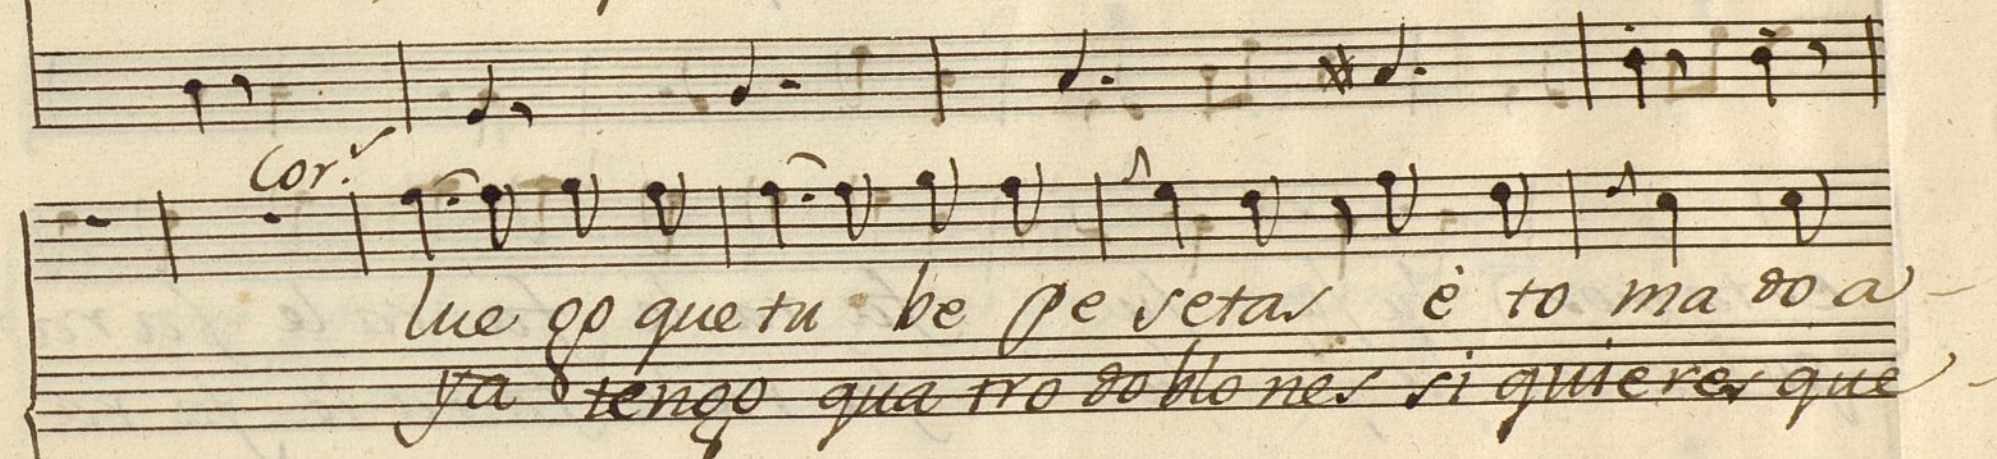 Cor.
lue go que tu be pe setas è to ma do a
ya tengo qua tro doblo nes si quieres que